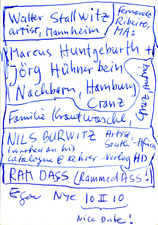 Walter Stallwitz
artist, Mannheim
Fernando
Ribeiro,
MA:
Marcus Huntgeburth +
Jörg Hühnerbein
Nachbarn, Hamburg
Cranz
Familie Krautwasche,
NILS BURWITZ Artist,
South-Africa
I worked on his
catalogue @ Kehrer-Verlag HD
RAM DASS (Rammed Ass!
NYC 10 II 10
Nice Date!